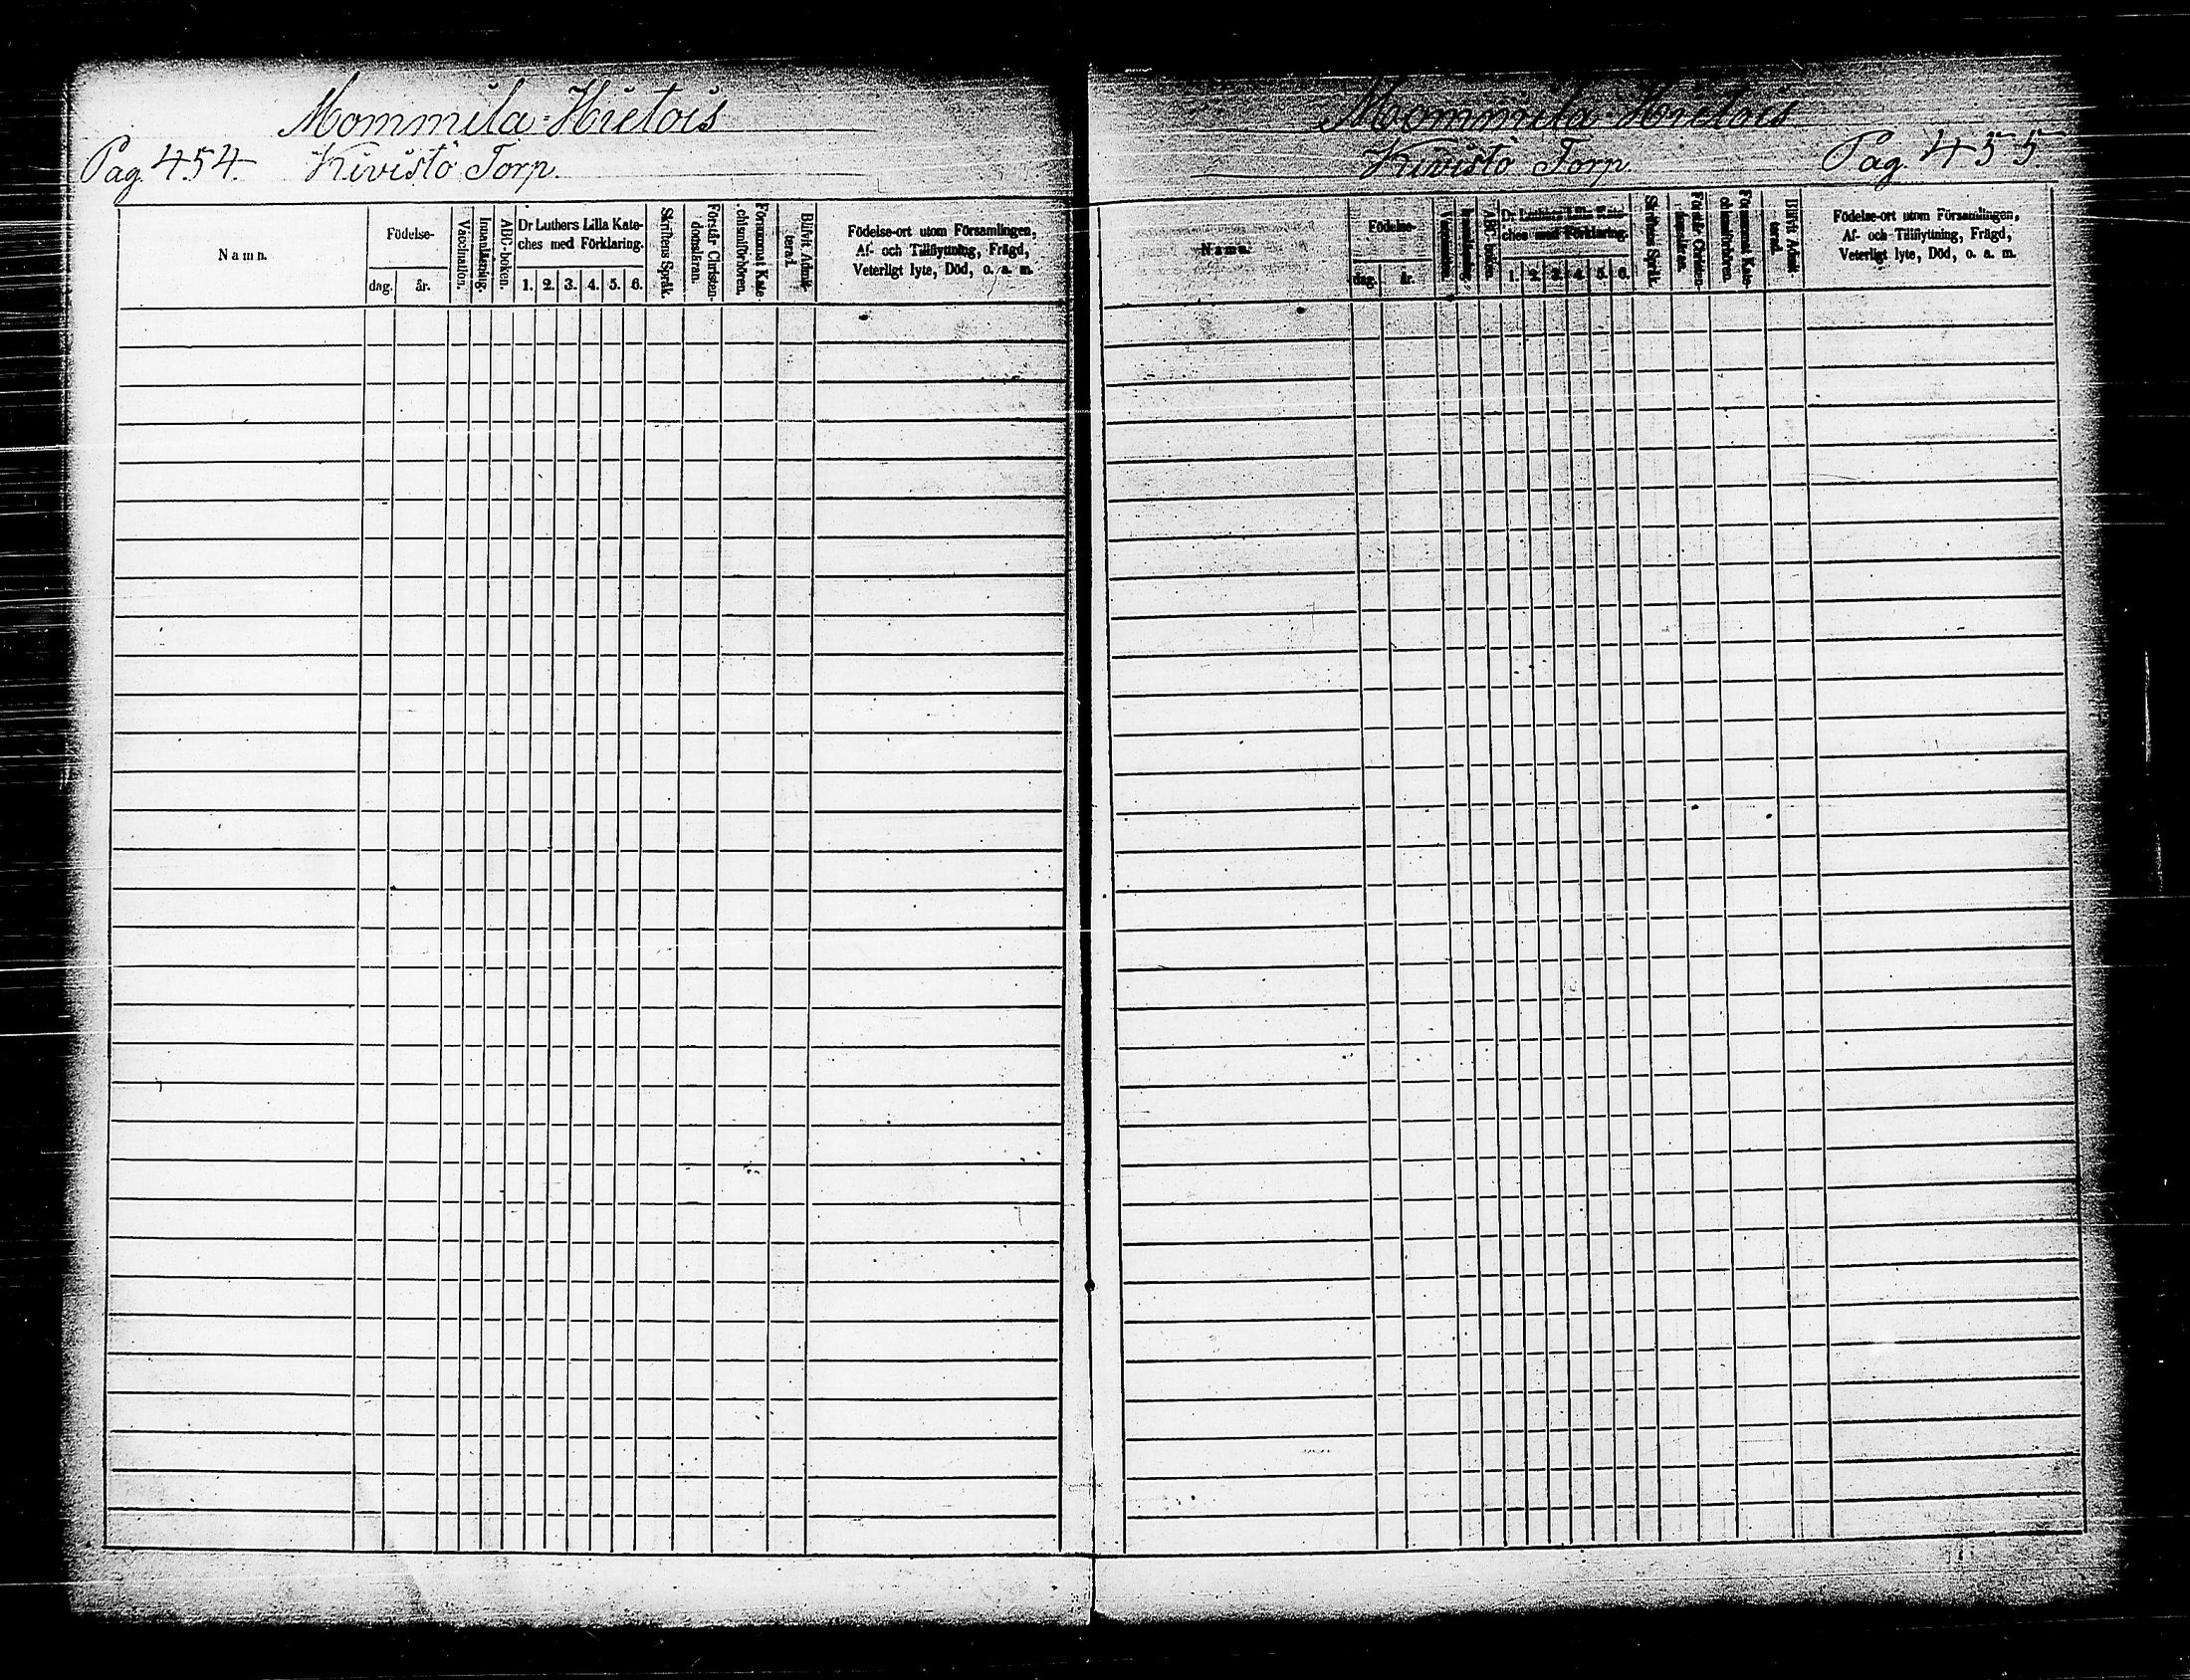 Mommila Hietois
Pag. 454. Kivistö Torp.
Namn.
Födelse-
dag. år.
Vaccination.
Innanläsning.
ABC-boken.
Dr Luthers Lilla Kate-
ches med Förklaring.
1. 2. 3. 4. 5. 6.
Skriftens Språk.
Förstår Christen-
domsläran.
Försummat Kate-
chismiförhören.
Blifvit Admit-
terad.
Födelse-ort utom Församlingen,
Af- och Tillflyttning, Frägd,
Veterligt lyte, Död, o. a. m.
Mommila Hietois
Kivistö Torp. Pag. 455
Namn.
Födelse-
dag. år.
Vaccination.
Innanläsning.
ABC-boken.
Dr Luthers Lilla Kate-
ches med Förklaring.
1. 2. 3. 4. 5. 6.
Skriftens Språk.
Förstår Christen-
domsläran.
Försummat Kate-
chismiförhören.
Blifvit Admit-
terad.
Födelse-ort utom Församlingen,
Af- och Tillflyttning, Frägd,
Veterligt lyte, Död, o. a. m.